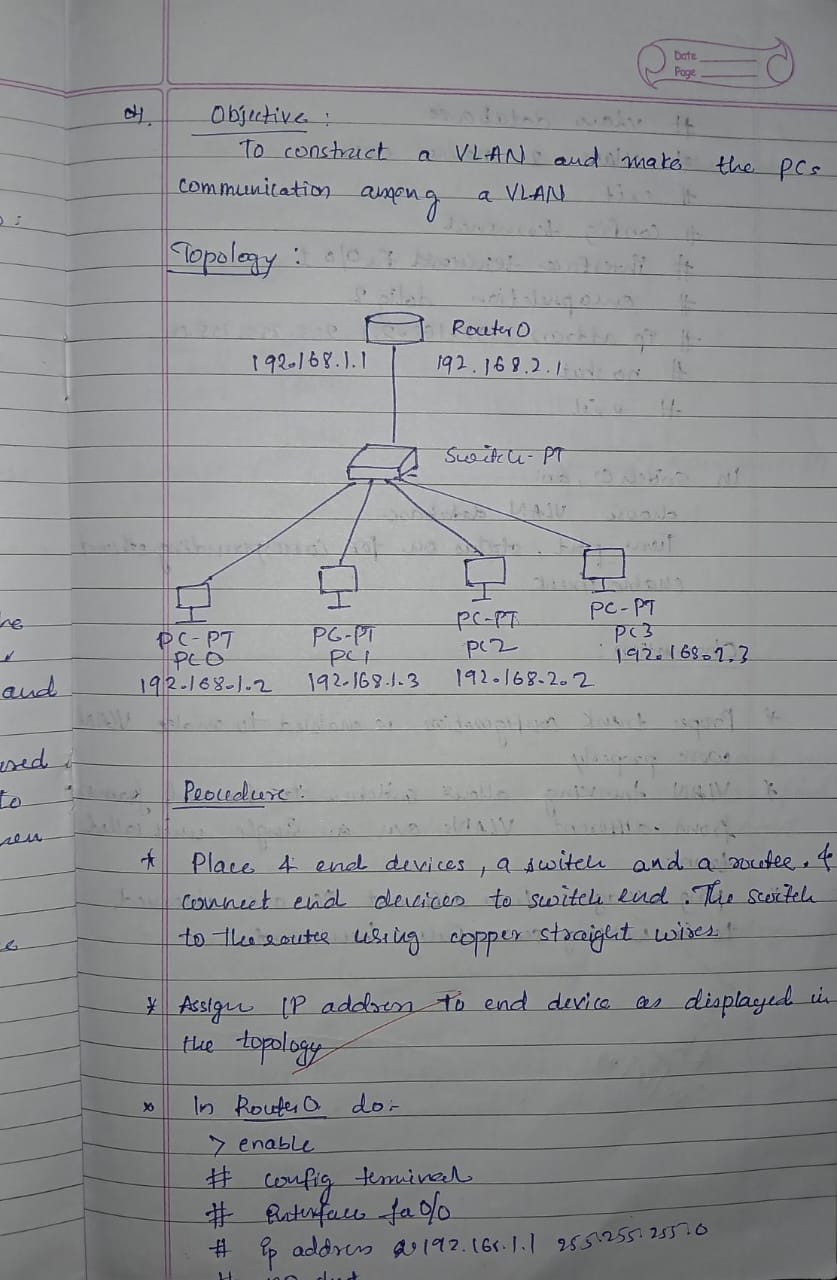 Date
Page
04.
Objective :
To construct a VLAN and make the PCs
communication among a VLAN
Topology :
Router0
192.168.1.1
192.168.2.1
Switch-PT
PC-PT
PC0
192.168.1.2
PC-PT
PC1
192.168.1.3
PC-PT
PC2
192.168.2.2
PC-PT
PC3
192.168.2.3
and
to
Procedure :
* Place 4 end devices, a switch and a router. &
connect end devices to switch end. The switch
to the router using copper straight wires.
* Assign IP address to end device as displayed in
the topology
* In Router0 do:-
> enable
# config terminal
# interface fa0/0
# ip address 192.168.1.1 255.255.255.0